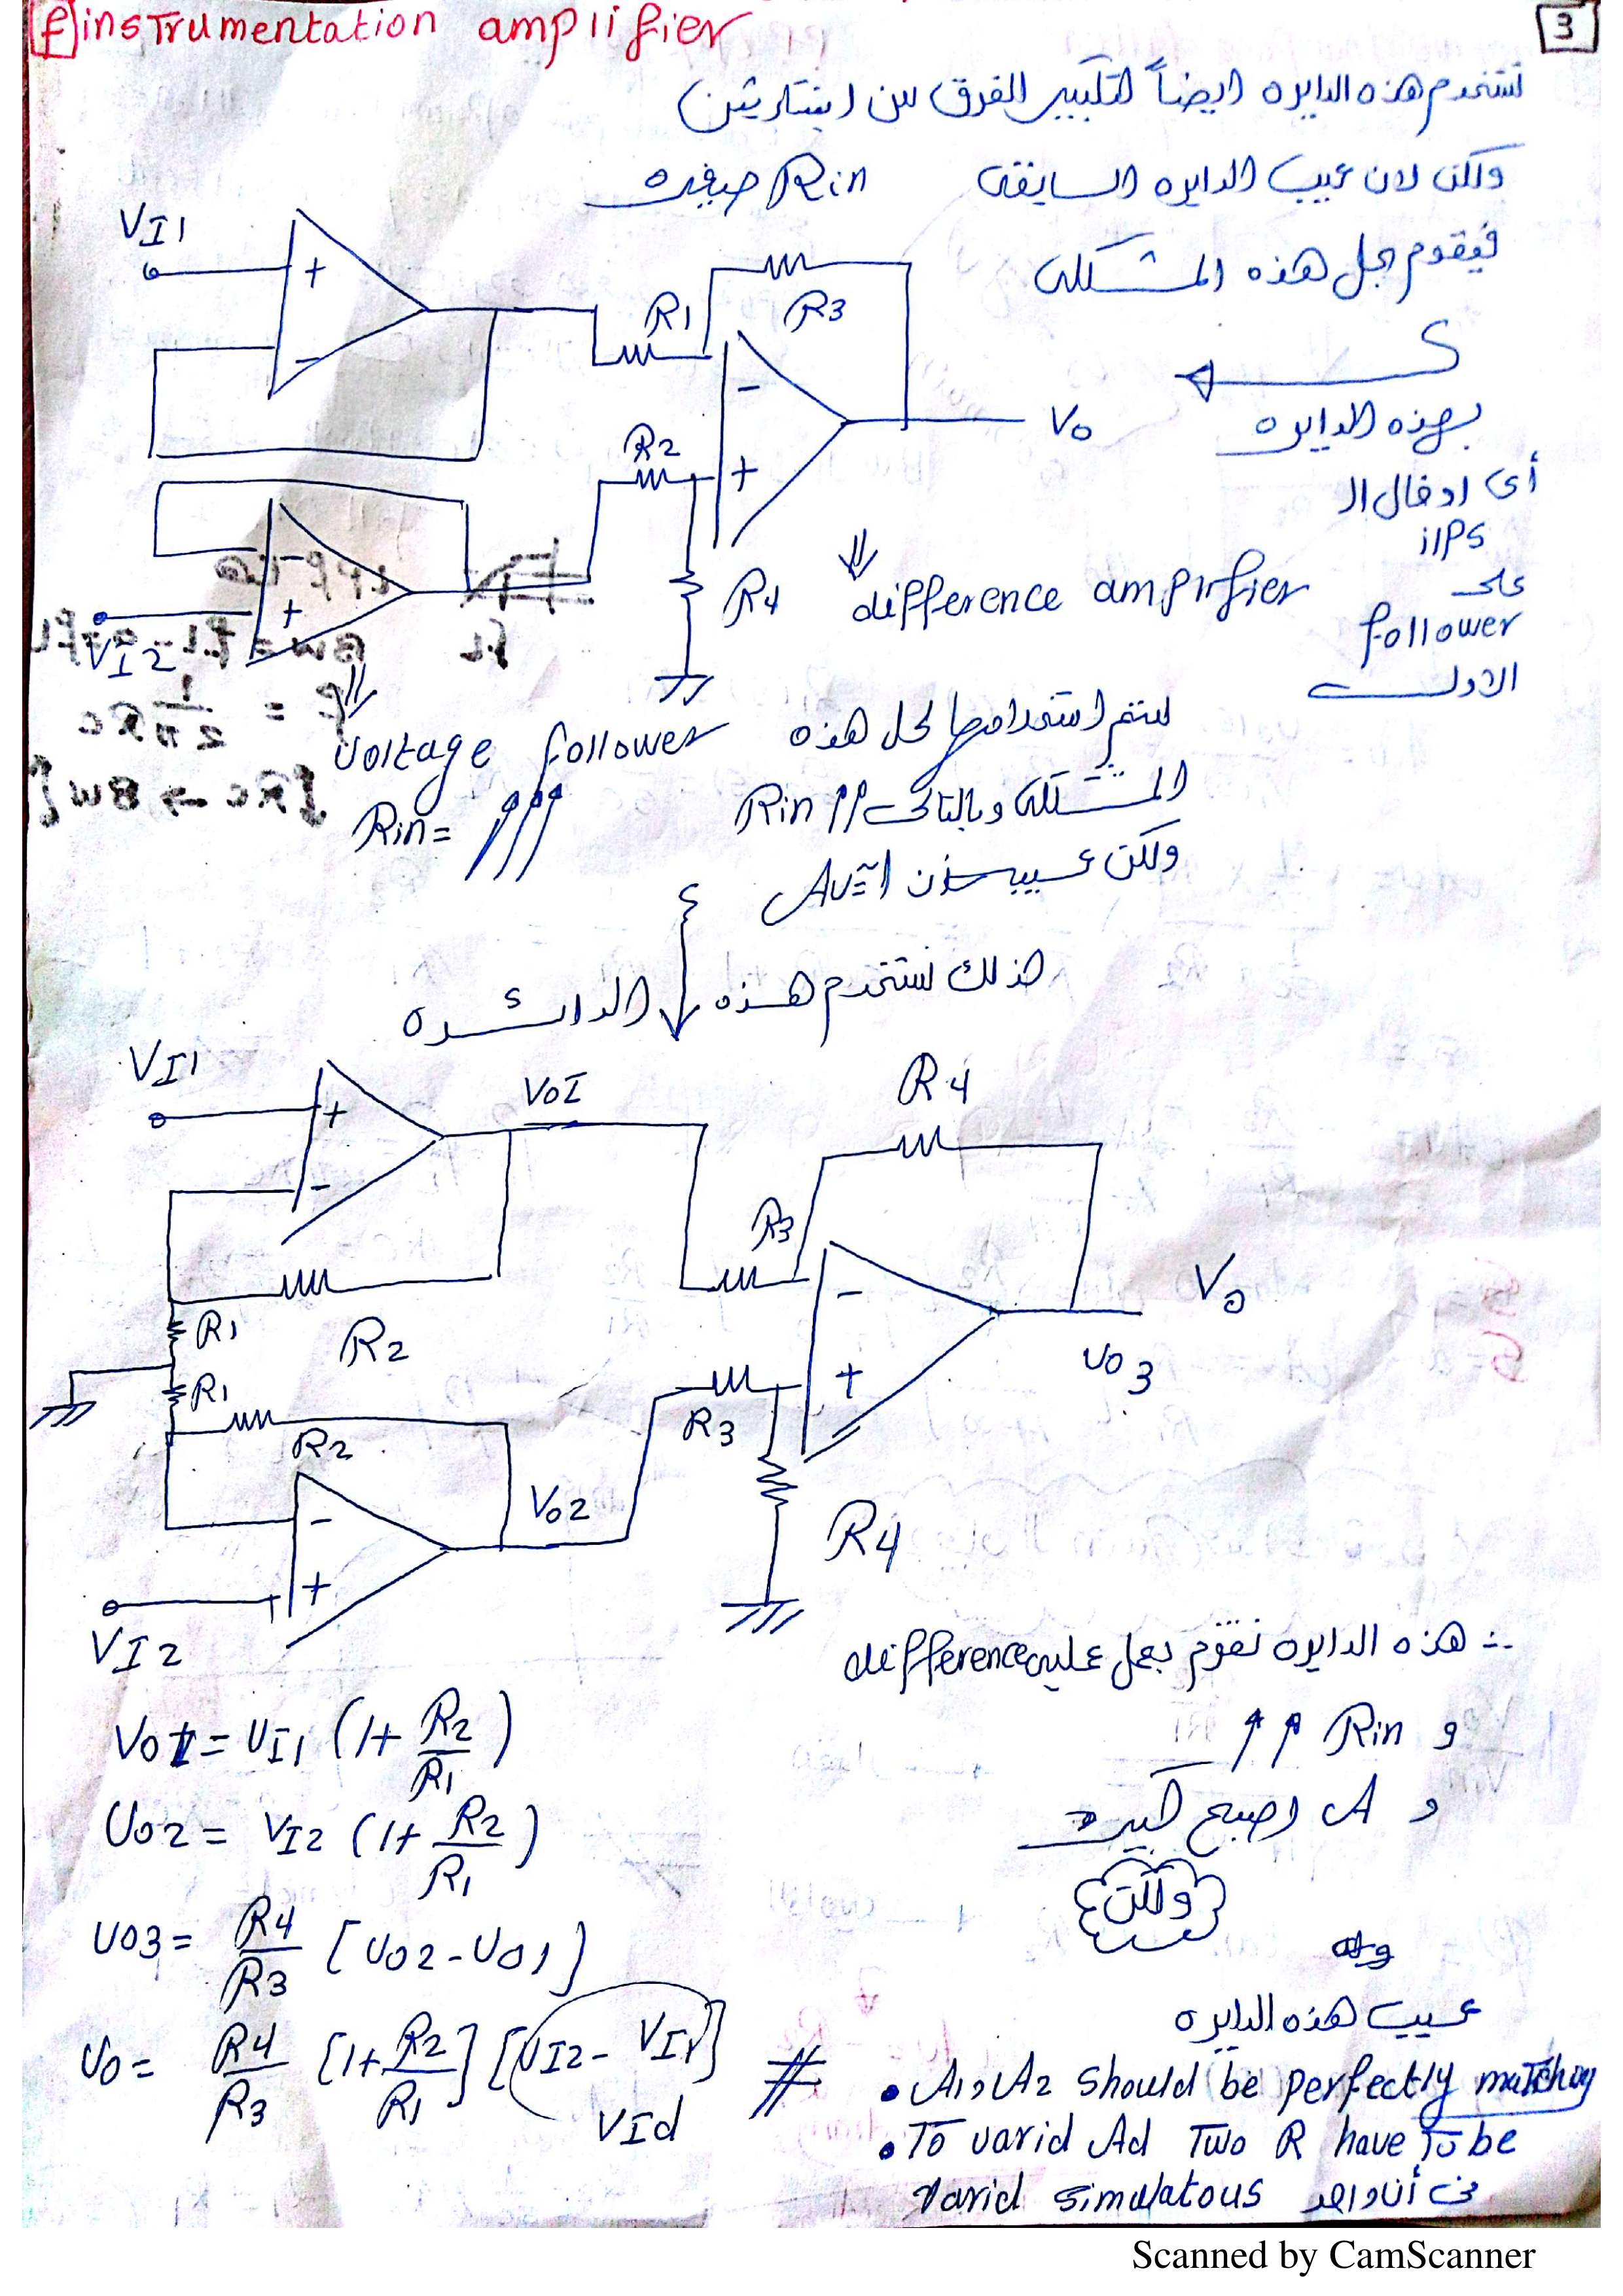 f) instrumentation amplifier
3
تستخدم هذه الدايره ايضاً لتكبير الفرق بين اشارتين
ولكن لان عيب الدايره السابقه Rin صغيره
فيقوم بحل هذه المشكله
بهذه الدايره
أى ادخال ال
i/Ps
على
follower
الاول
VI1
+
-
R1
R3
-
+
Vo
R2
R4
-
+
VI2
difference amplifier
voltage follower
Rin=
ليتم استخدامها لحل هذه
المشكله وبالتالى Rin ↑↑
ولكن عيبه ان Av≈1
لذلك نستخدم هذه الدائره
VI1
+
-
VoI
R4
R3
R2
R1
R1
R2
-
+
Vo
vo3
R3
R4
Vo2
-
+
VI2
∴ هذه الدايره تقوم بعمل عمليه difference
و Rin ↑↑
و A اصبح كبيره
ولكن
عيب هذه الدايره
VoI = VI1 (1+ R2/R1)
Vo2 = VI2 (1+ R2/R1)
Vo3 = R4/R3 [Vo2-Vo1]
Vo = R4/R3 [1+ R2/R1] [VI2 - VI1] #
VId
• A1, A2 should be perfectly matching
• To varid Ad Two R have To be
varid simulatous فى أن واحد
Scanned by CamScanner